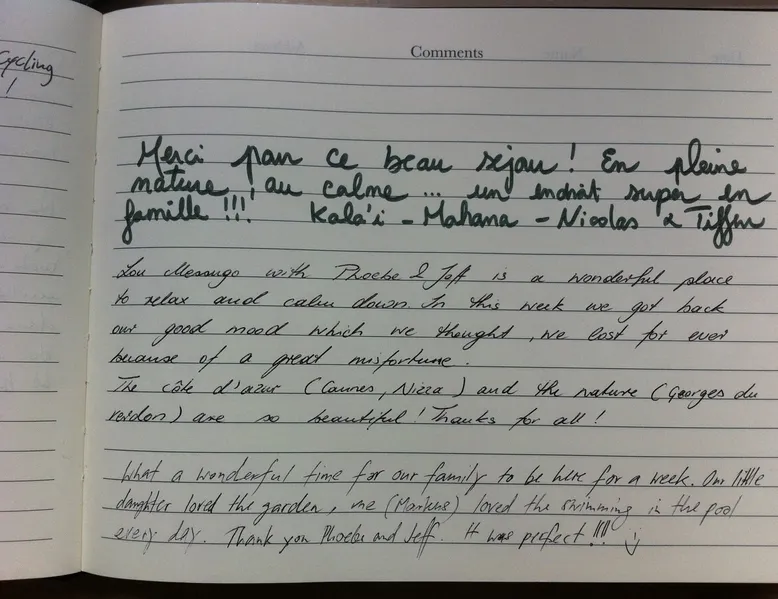 Cycling
!
Comments
Merci pour ce beau séjour! En pleine
nature, au calme ... un endroit super en
famille !!! Kala'i - Mahana - Nicolas & Tiffen
Lou Messugo with Phoebe & Jeff is a wonderful place
to relax and calm down. In this week we got back
our good mood which we thought, we lost for ever
because of a great misfortune.
The côte d'azur (Cannes, Nizza) and the nature (Georges du
Verdon) are so beautiful! Thanks for all!
What a wonderful time for our family to be here for a week. Our little
daughter loved the garden, me (Markus) loved the swimming in the pool
every day. Thank you Phoebe and Jeff. It was perfect!!! :)